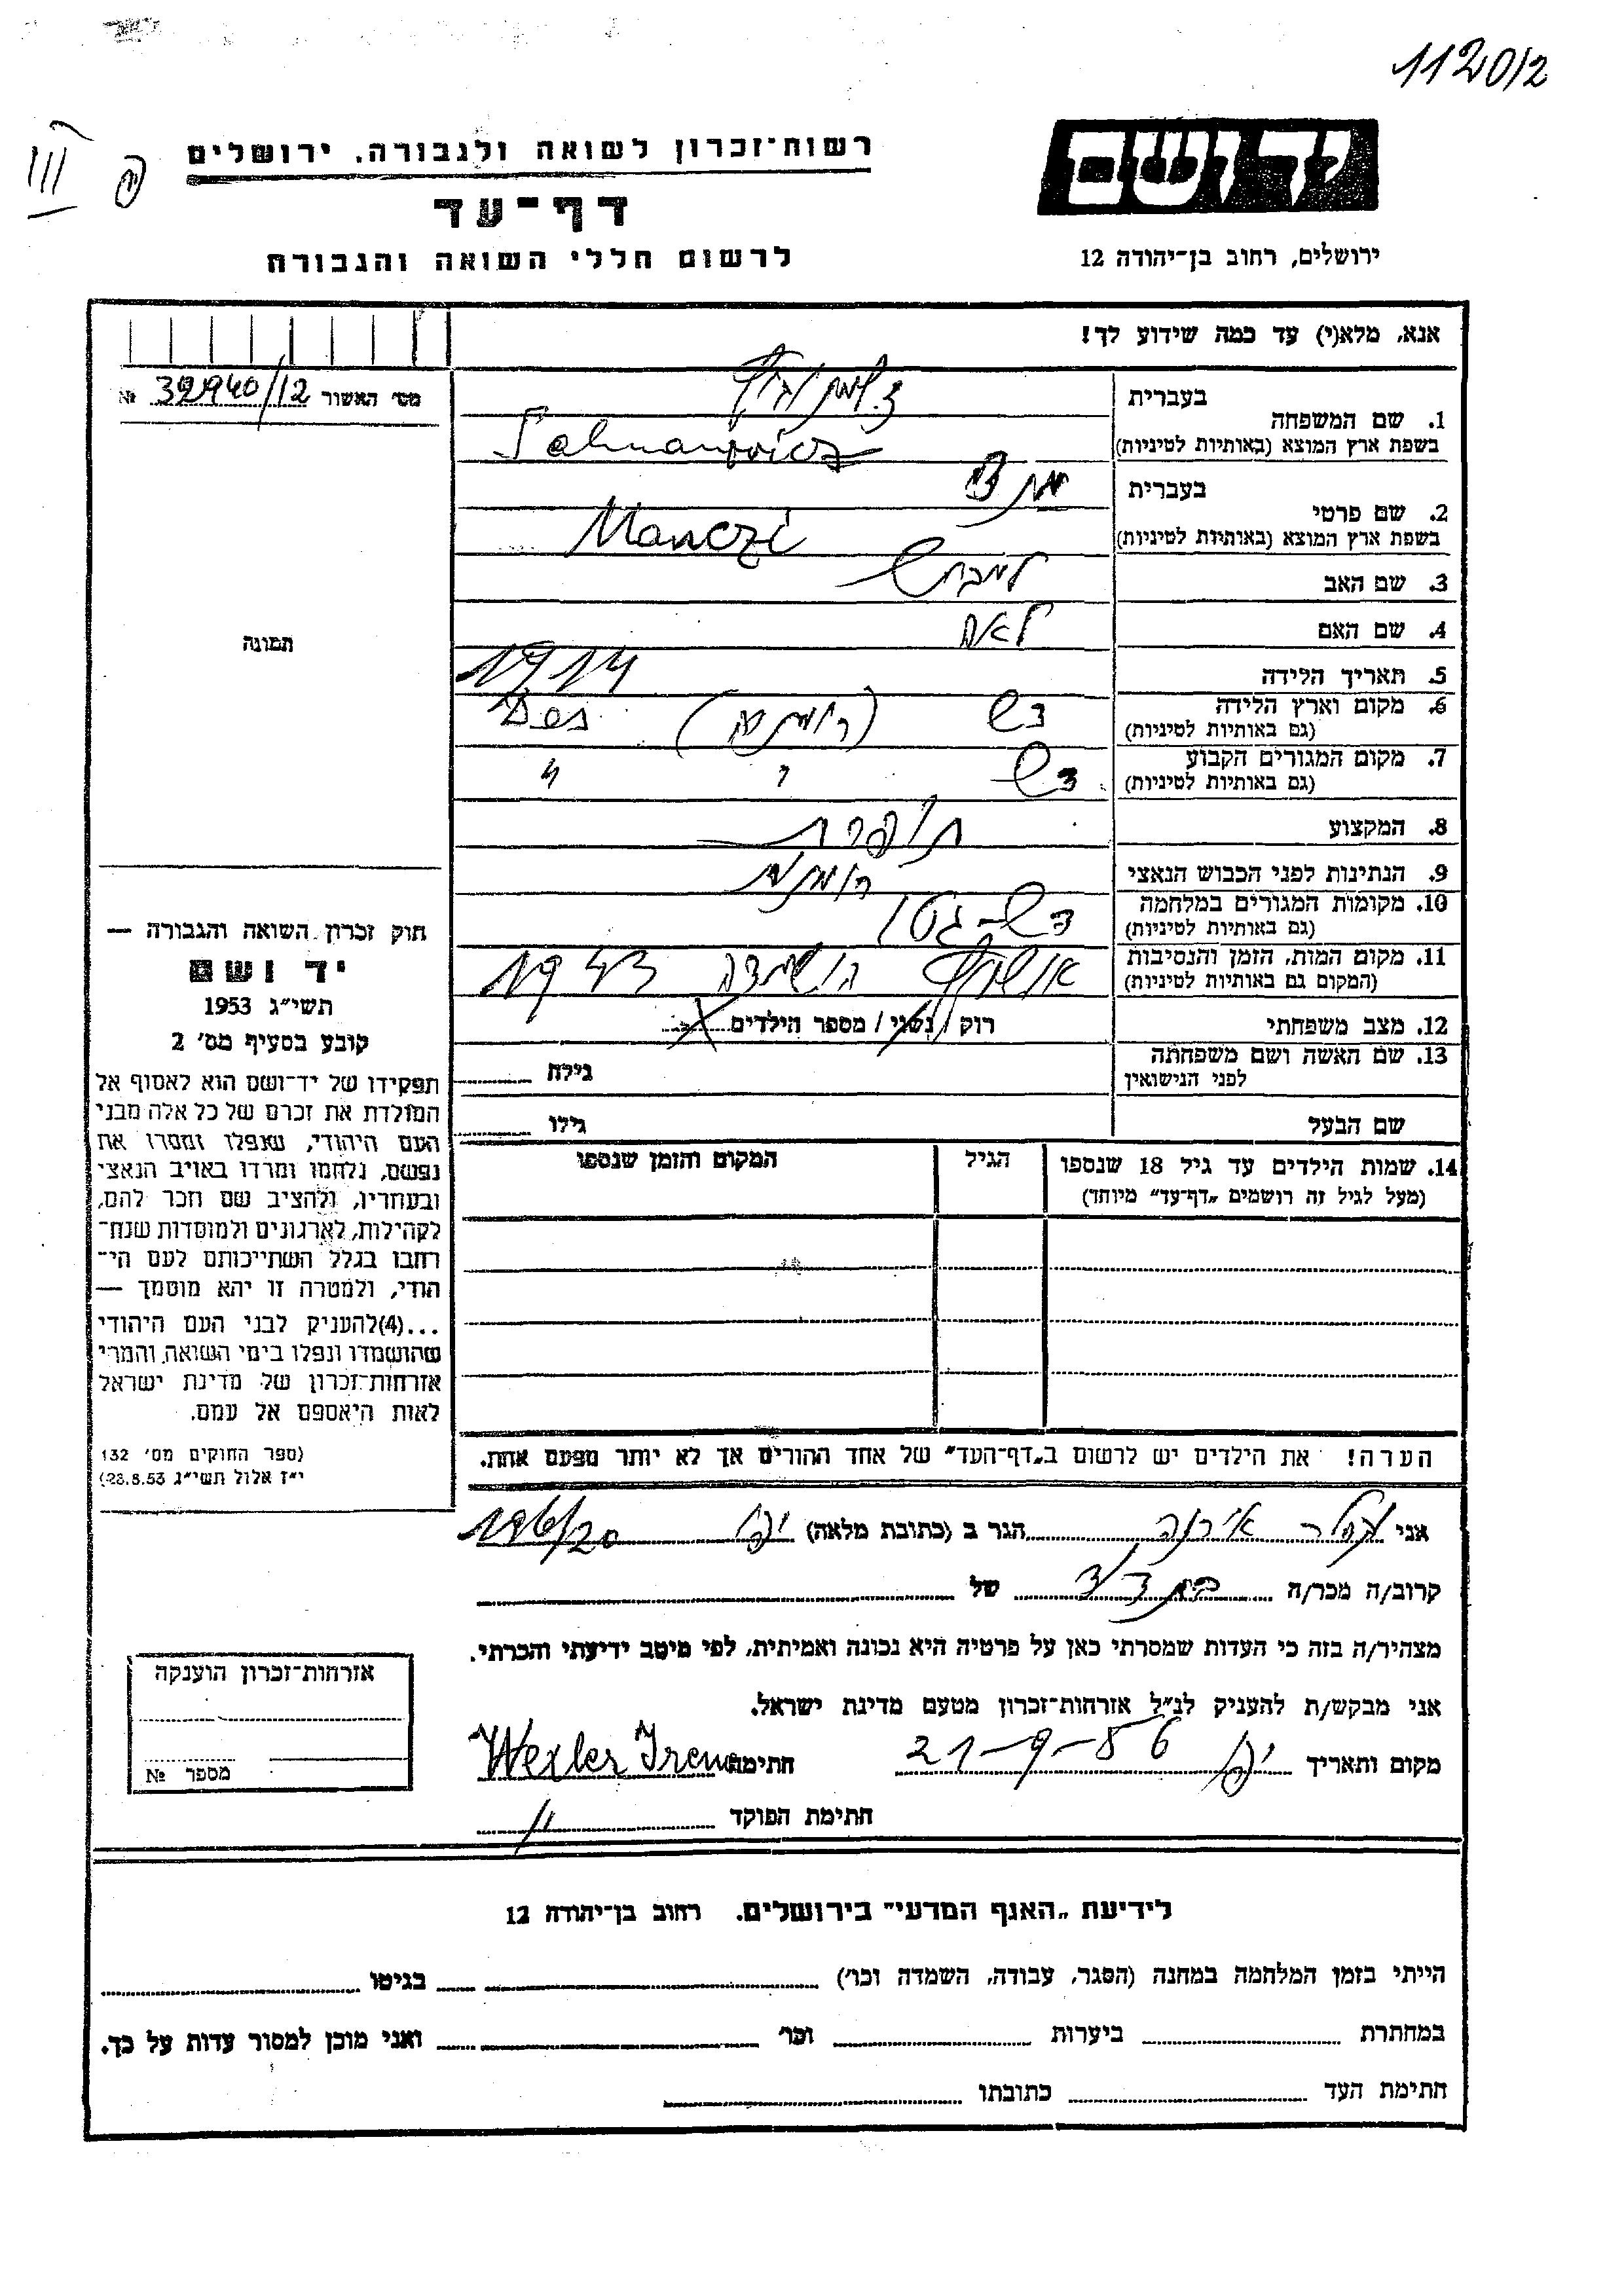 1120/2
III
רשות־זכרון לשואה ולגבורה, ירושלים
דף־עד
לרשום חללי השואה והגבורה
ידושם
ירושלים, רחוב בן־יהודה 12
אנא, מלא(י) עד כמה שידוע לך!
מס׳ האשור 32940/12 №
1. שם המשפחה בעברית
בשפת ארץ המוצא (באותיות לטיניות)
2. שם פרטי בעברית
בשפת ארץ המוצא (באותיות לטיניות) Manczi
3. שם האב
4. שם האם לאה
תמונה
5. תאריך הלידה 1914
6. מקום וארץ הלידה דש (רומניה) Des
(גם באותיות לטיניות)
7. מקום המגורים הקבוע דש
(גם באותיות לטיניות)
8. המקצוע תופרת
9. הנתינות לפני הכבוש הנאצי רומנית
10. מקומות המגורים במלחמה דש־גטו
(גם באותיות לטיניות)
11. מקום המות, הזמן והנסיבות אושויץ הושמדה 1943
(המקום גם באותיות לטיניות)
12. מצב משפחתי רוק / נשוי / מספר הילדים
13. שם האשה ושם משפחתה
לפני הנישואין גילה
שם הבעל גילו
14. שמות הילדים עד גיל 18 שנספו הגיל המקום והזמן שנספו
(מעל לגיל זה רושמים „דף־עד” מיוחד)
חוק זכרון השואה והגבורה —
יד ושם
תשי״ג 1953
קובע בסעיף מס׳ 2
תפקידו של יד־ושם הוא לאסוף אל
המולדת את זכרם של כל אלה מבני
העם היהודי, שנפלו ומסרו את
נפשם, נלחמו ומרדו באויב הנאצי
ובעוזריו, ולהציב שם וזכר להם,
לקהילות, לארגונים ולמוסדות שנח־
רבו בגלל השתייכותם לעם הי־
הודי, ולמטרה זו יהא מוסמך —
...(4)להעניק לבני העם היהודי
שהושמדו ונפלו בימי השואה והמרי
אזרחות־זכרון של מדינת ישראל
לאות היאספם אל עמם.
(ספר החוקים מס׳ 132
י״ז אלול תשי״ג 28.8.53)
הערה! את הילדים יש לרשום ב„דף־העד” של אחד ההורים אך לא יותר מפעם אחת.
אני וקסלר אירנה הגר ב (כתובת מלאה) יפו 196/20
קרוב/ה מכר/ה בת דוד של
מצהיר/ה בזה כי העדות שמסרתי כאן על פרטיה היא נכונה ואמיתית, לפי מיטב ידיעתי והכרתי.
אני מבקש/ת להעניק לנ״ל אזרחות־זכרון מטעם מדינת ישראל.
מקום ותאריך יפו 21-9-56 חתימה Wexler Irena
חתימת הפוקד
אזרחות־זכרון הוענקה
מספר №
לידיעת „האגף המדעי” בירושלים. רחוב בן־יהודה 12
הייתי בזמן המלחמה במחנה (הסגר, עבודה, השמדה וכו׳) בגיטו
במחתרת ביערות וכו׳ ואני מוכן למסור עדות על כך.
חתימת העד כתובתו